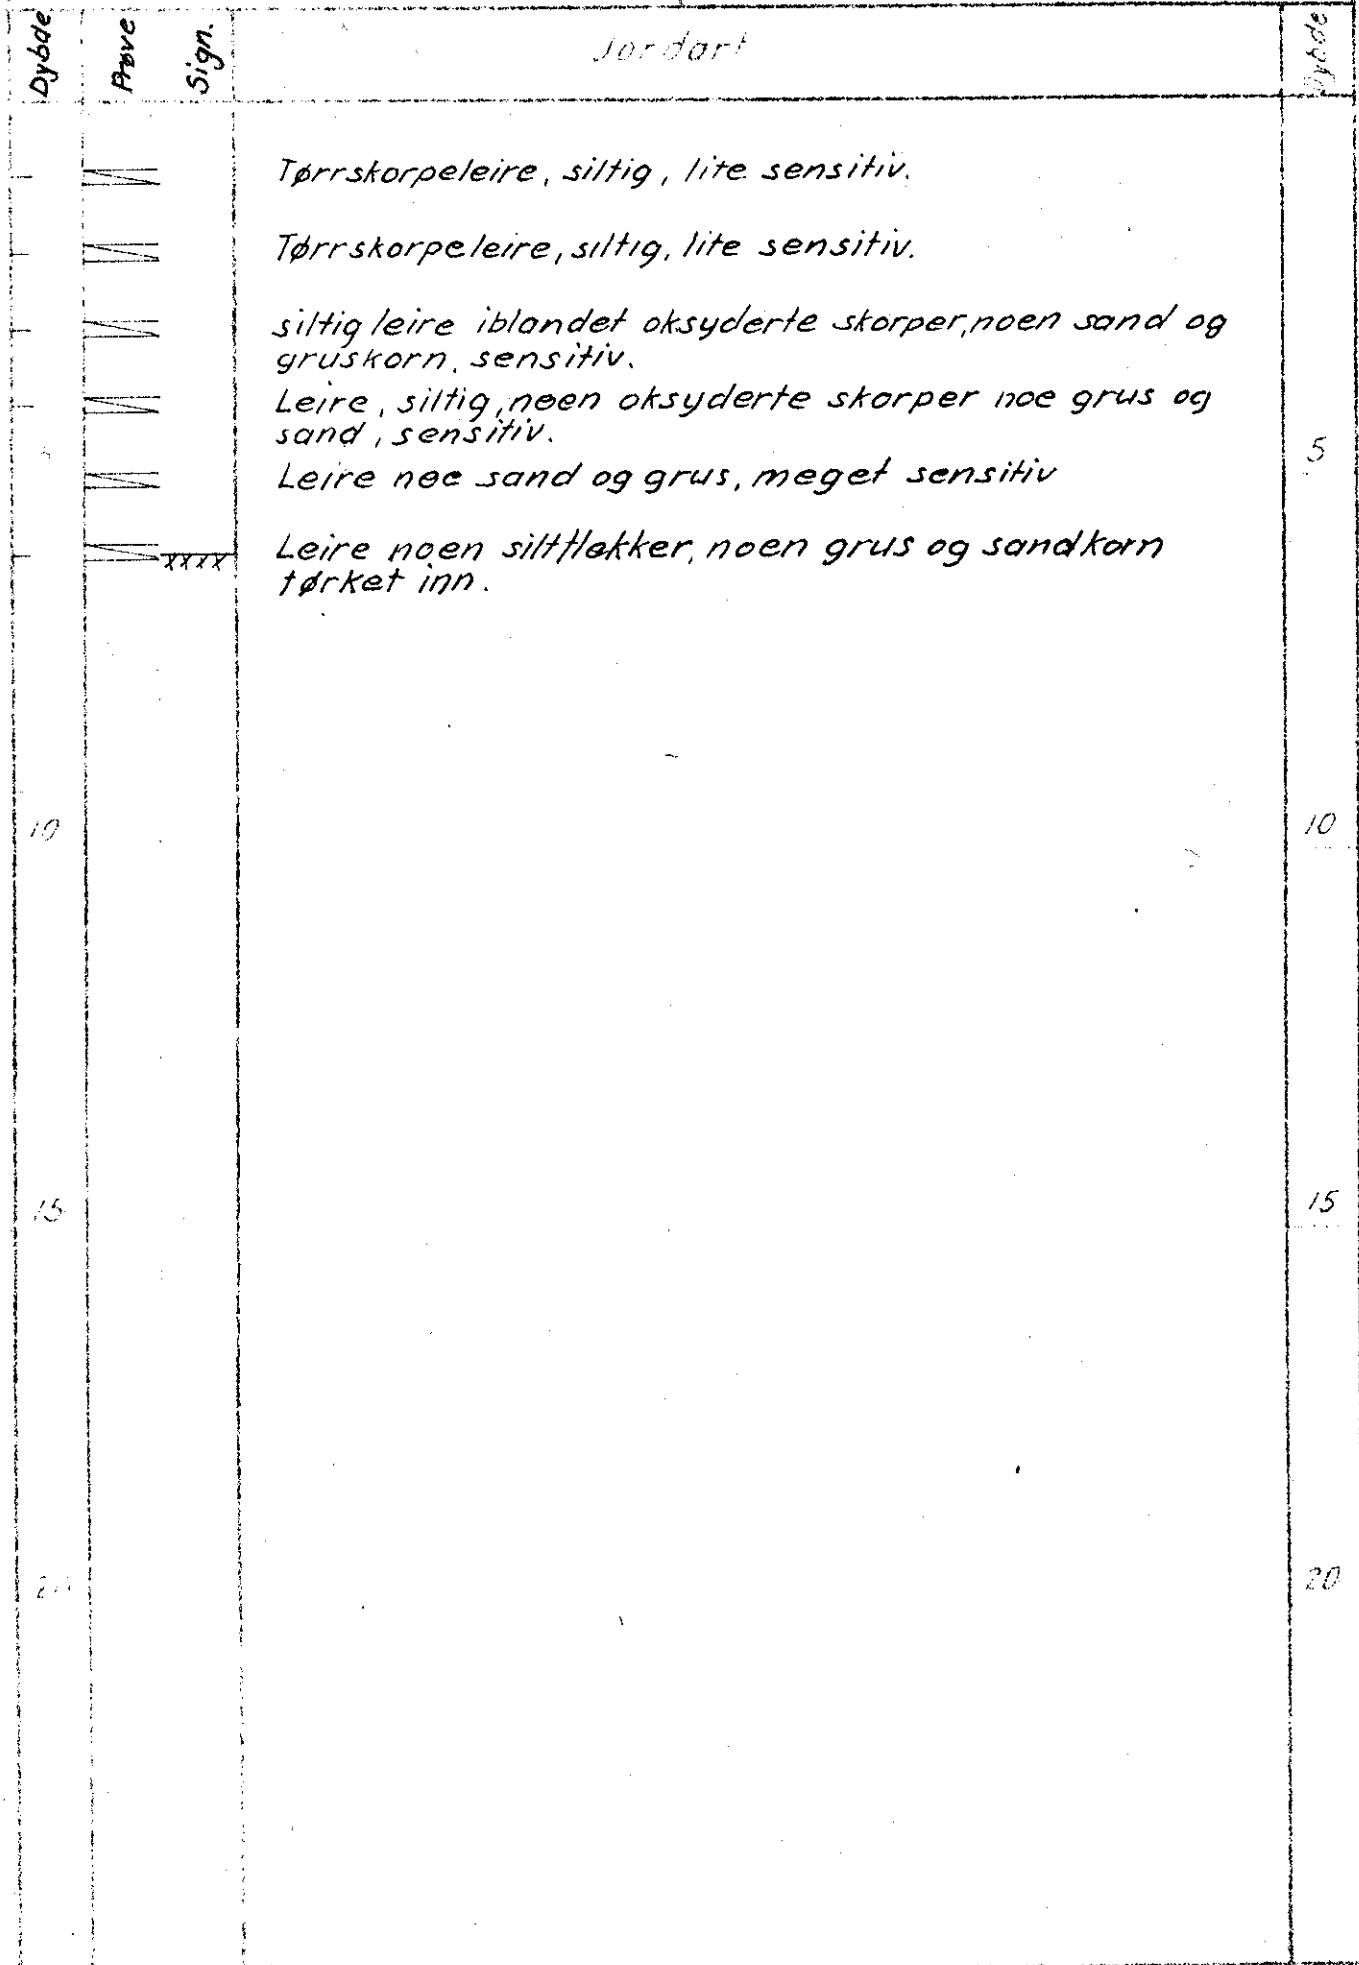 Dybde Prøve Sign. Jordart Dybde
Tørrskorpeleire, siltig, lite sensitiv.
Tørrskorpeleire, siltig, lite sensitiv.
siltig leire iblandet oksyderte skorper, noen sand og
gruskorn, sensitiv.
Leire, siltig, noen oksyderte skorper noe grus og
sand, sensitiv.
5
Leire noe sand og grus, meget sensitiv
Leire noen siltflekker, noen grus og sandkorn
xxxx
tørket inn.
10 10
15 15
20 20